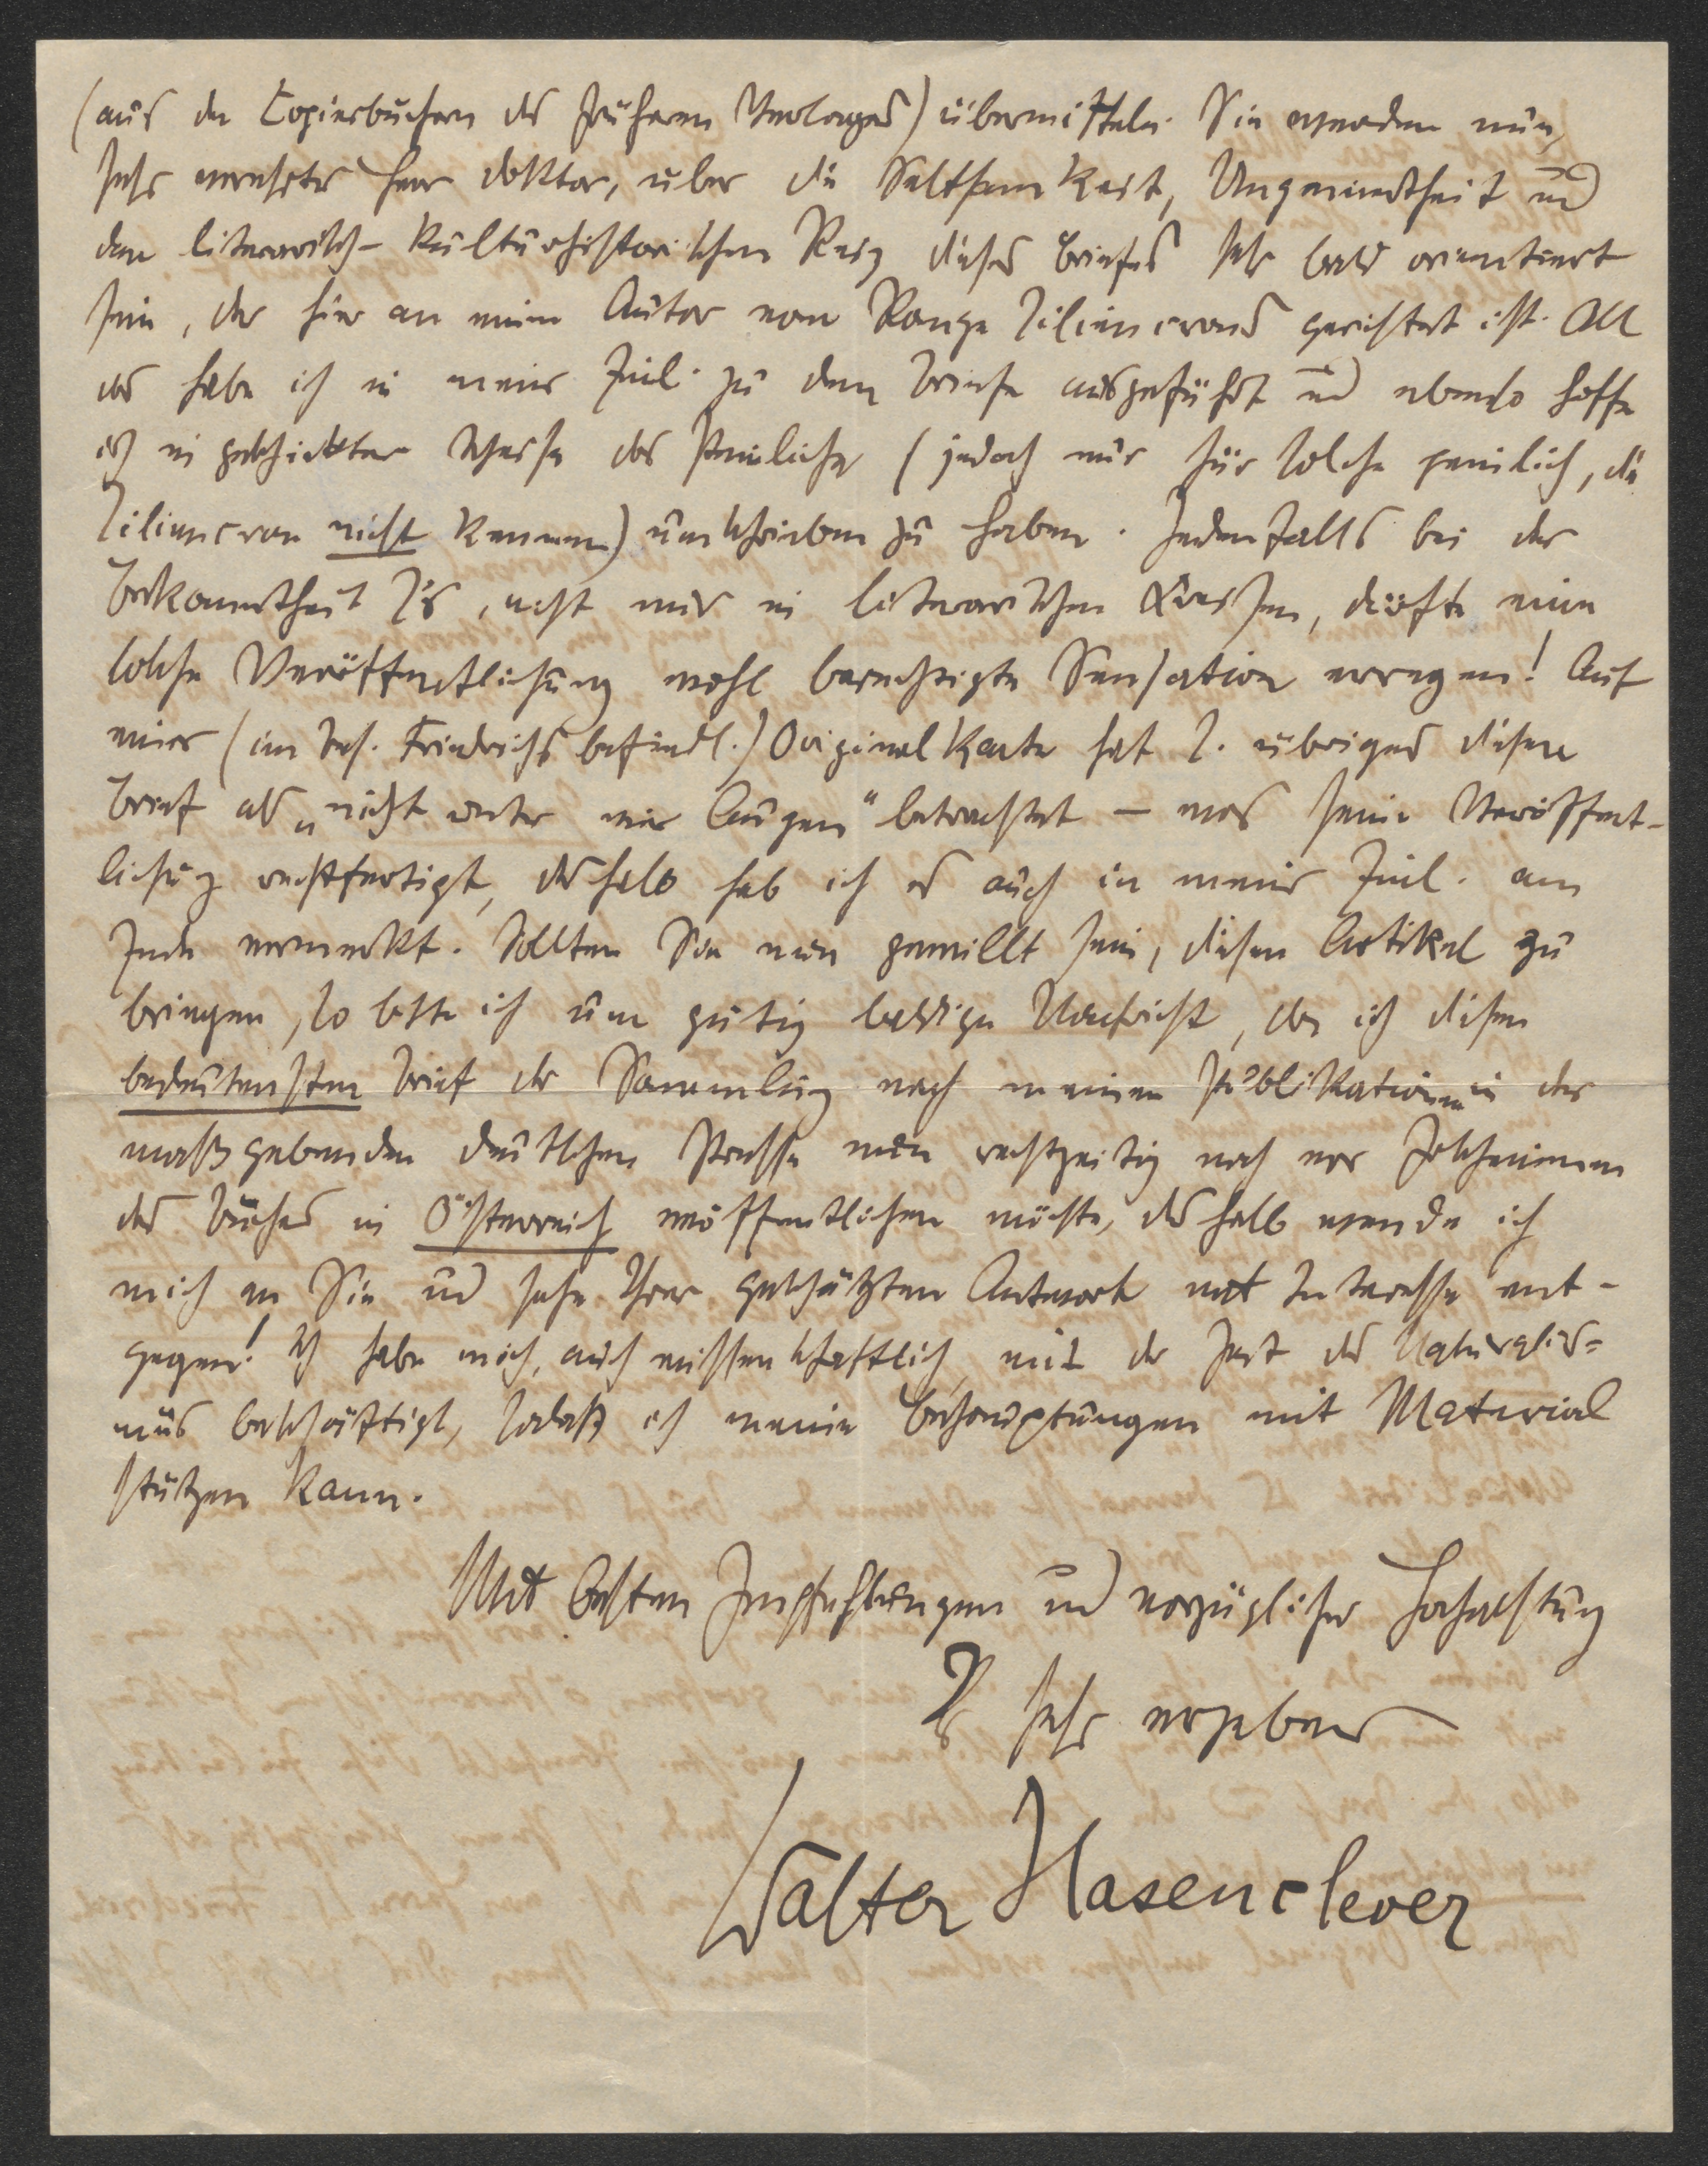 (aus den Copierbüchern des früheren Verlages) übermitteln. Sie werden nun,
sehr verehrter Herr Doktor, über die Seltsamkeit, Ungewandtheit und
den literarisch-kulturhistorischen Reiz dieses Briefes sehr bald orientiert
sein, der hier an einen Autor vom Range Liliencrons gerichtet ist. All
das habe ich in meiner Einl. zu dem Briefe ausgeführt und ebenso hoffe
ich in geschickter Weise das Peinliche (jedoch nur für solche peinlich, die
Liliencron nicht kennen) umschrieben zu haben. Jedenfalls bei der
Bekanntheit L's, nicht nur in literarischen Kreisen, dürfte eine
solche Veröffentlichung wohl berechtigte Sensation erregen! Auf
einer (im Bes. Friedrichs befindl.) Originalkarte hat L. übrigens diesen
Brief als „nicht unter vier Augen" betrachtet – was seine Veröffent-
lichung rechtfertigt, deshalb hab ich es auch in meiner Einl. am
Ende vermerkt. Sollten Sie nun gewillt sein, diesen Artikel zu
bringen, so bitte ich um gütig baldige Nachricht, da ich diesen
bedeutensten Brief der Sammlung nach meinen Publikationen in der
maßgebenden deutschen Presse nun rechtzeitig noch vor Erscheinen
des Buches in Österreich veröffentlichen möchte, deshalb wende ich
mich an Sie und sehe Ihrer geschätzten Antwort mit Interesse ent-
gegen! Ich habe mich, auch wissenschaftlich, mit der Zeit des Naturalis-
mus beschäftigt, sodaß ich meine Behauptungen mit Material
stützen kann.
Mit besten Empfehlungen und vorzüglicher Hochachtung
Ihr sehr ergebener
Walter Hasenclever